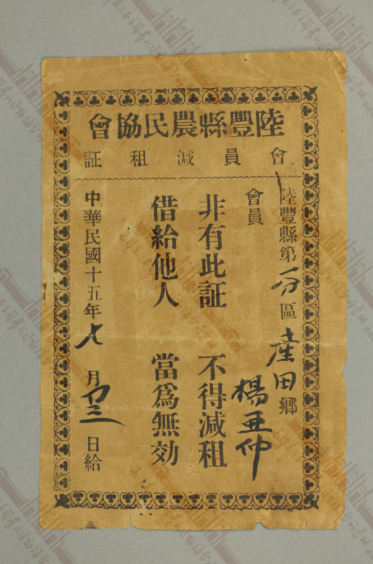 會協民農縣豐陸
証租減員會
陸豐縣第一分區産田鄉
會員 楊亚仲
非有此証 不得減租
借給他人 當爲無効
中華民國十五年 七 月 日給